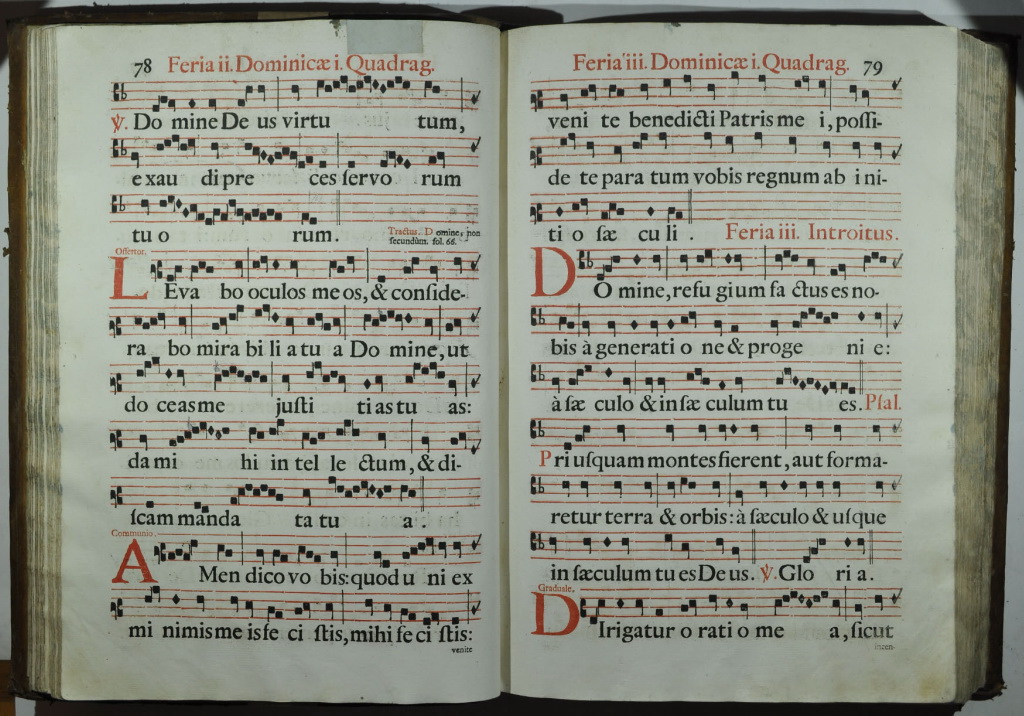 78 Feria ii. Dominicæ i. Quadrag.
℣. Do mine De us virtu tum,
exau di pre ces ſervo rum
tu o rum. Tractus. Domine, non
ſecundùm. fol. 66.
Offertor.
LEva bo oculos me os, & conſide-
ra bo mira bi li a tu a Do mine, ut
do ceas me juſti ti as tu as:
da mi hi in tel le ctum, & di-
ſcam manda ta tu a.
Communio.
AMen dico vo bis: quod u ni ex
mi nimis me is fe ci ſtis, mihi fe ci ſtis:
venite
Feria iii. Dominicæ i. Quadrag. 79
veni te benedicti Patris me i, poſſi-
de te para tum vobis regnum ab i ni-
ti o ſæ cu li. Feria iii. Introitus.
DO mine, refu gium fa ctus es no-
bis à generati o ne & proge ni e:
à ſæ culo & in ſæ culum tu es. Pſal.
Priuſquam montes fierent, aut forma-
retur terra & orbis: à ſæculo & uſque
in ſæculum tu es Deus. ℣. Glo ri a.
Graduale.
DIrigatur o rati o me a, ſicut
incen-